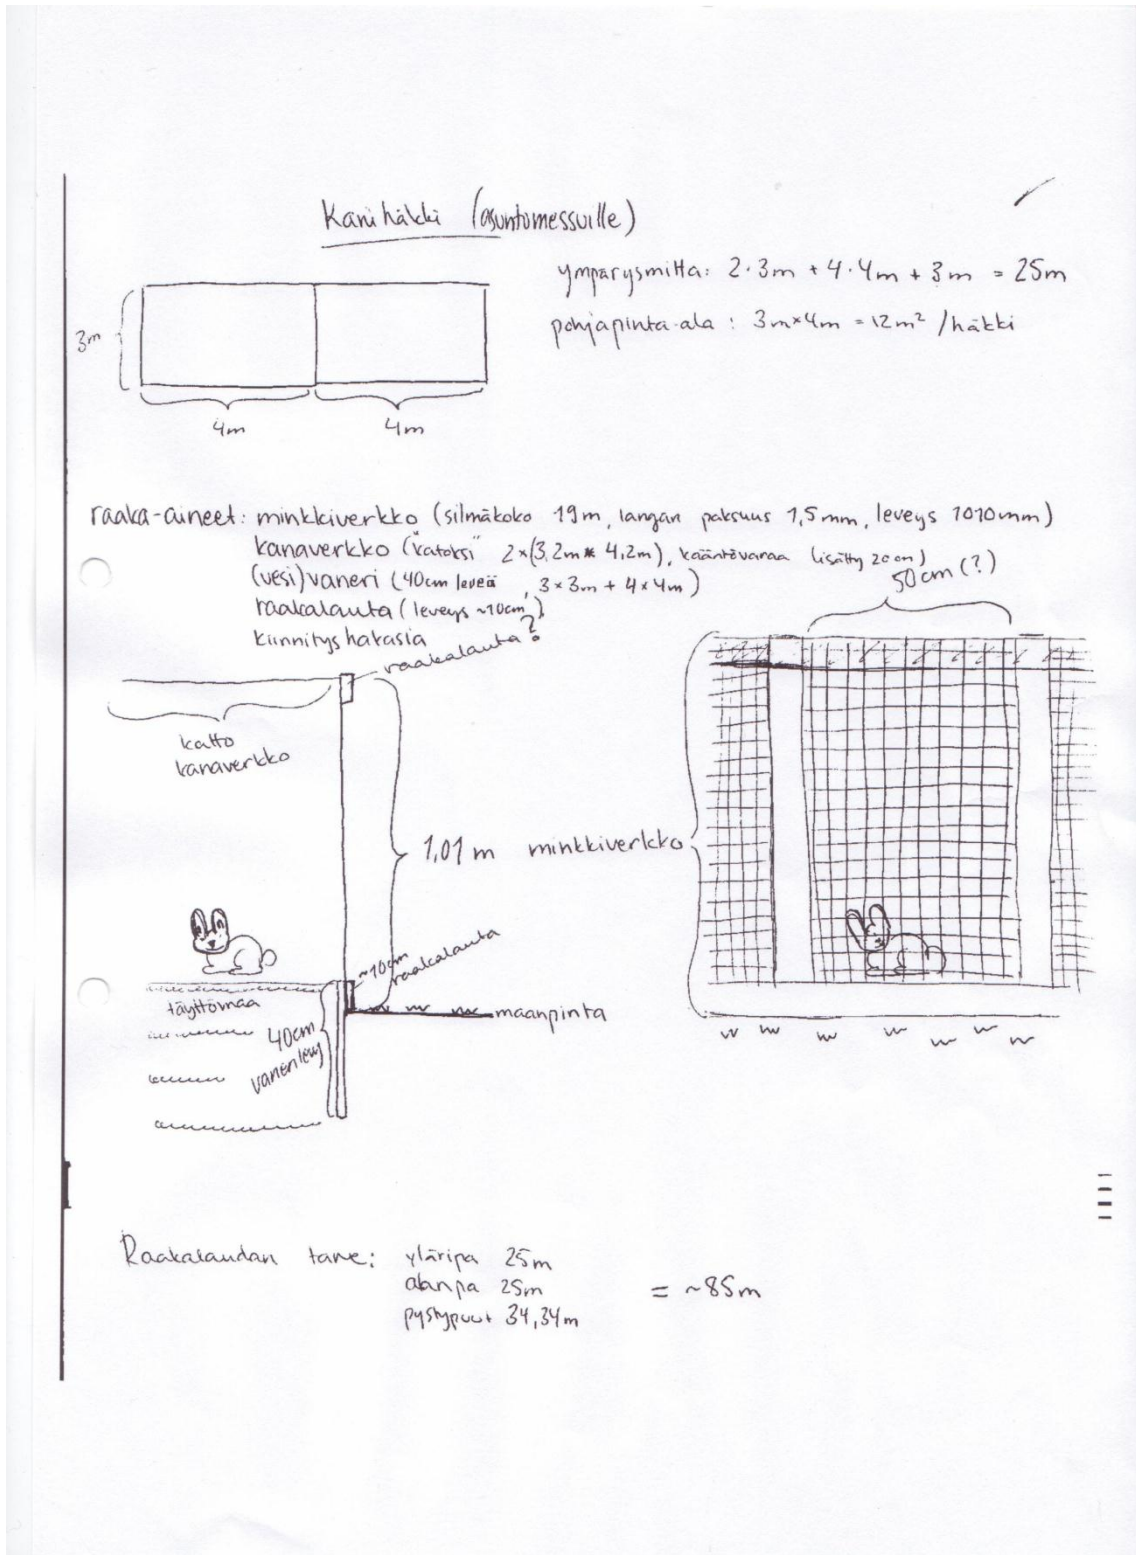 Kanihäkki (asuntomessuille)
ympärysmitta: 2·3m + 4·4m + 3m = 25m
pohjapinta-ala : 3m×4m = 12m² /häkki
3m
4m
4m
raaka-aineet: minkkiverkko (silmäkoko 19m, langan paksuus 1,5mm, leveys 1010mm)
kanaverkko ("katoksi" 2×(3,2m × 4,2m), kääntövaraa lisätty 20cm)
(vesi)vaneri (40cm leveä, 3×3m + 4×4m)
raakalauta (leveys ~10cm)
kiinnityshakasia
raakalauta?
50cm (?)
katto
kanaverkko
1,01m minkkiverkko
~10cm
raakalauta
täyttömaa
40cm
vanerilevy
maanpinta
Raakalaudan tarve: yläripa 25m
alaripa 25m
= ~85m
pystypuut 34,34m